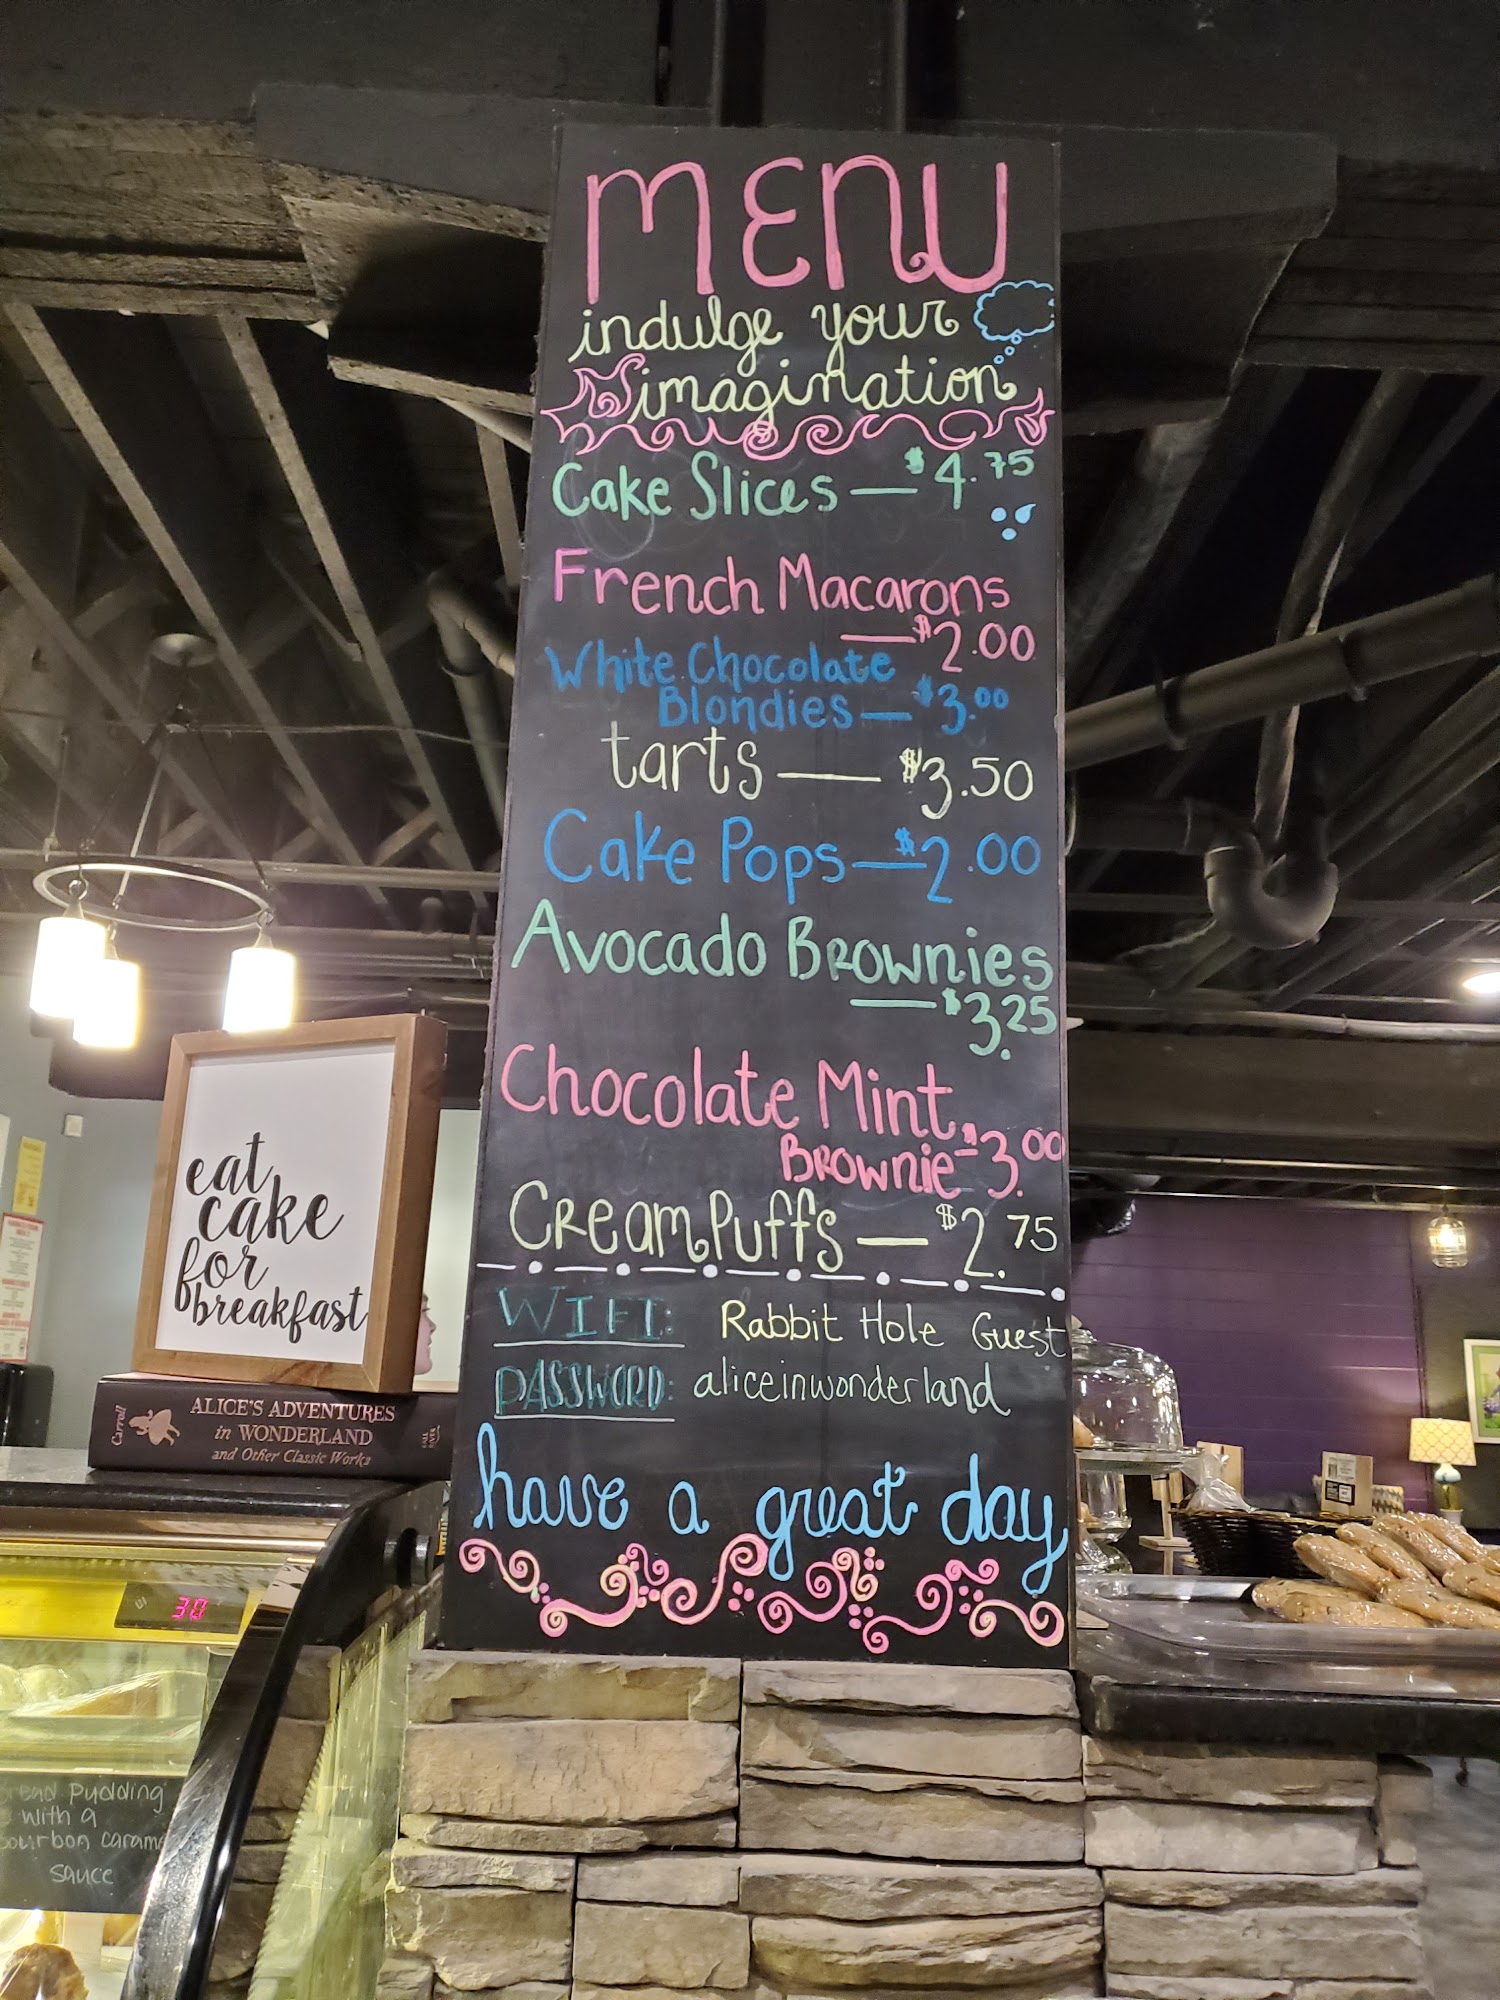 MENU
indulge your
imagination
Cake Slices — $4.75
French Macarons
— $2.00
White Chocolate
Blondies — $3.00
tarts — $3.50
Cake Pops — $2.00
Avocado Brownies
— $3.25
Chocolate Mint
Brownie - $3.00
Cream Puffs — $2.75
WIFI: Rabbit Hole Guest
PASSWORD: aliceinwonderland
have a great day
eat
cake
for
breakfast
Carroll
ALICE'S ADVENTURES
in WONDERLAND
and Other Classic Works
30
Pudding
with a
sauce